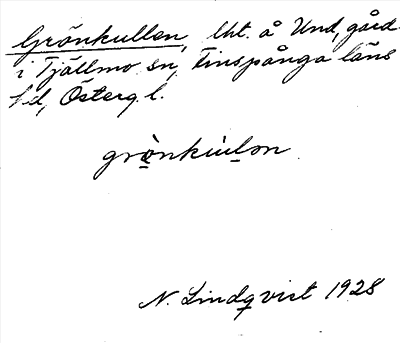 Grönkullen, lht. å Und, gård
i Tjällmo sn, Finspånga läns
hd, Österg. l.
grònkùlen
N. Lindqvist 1928